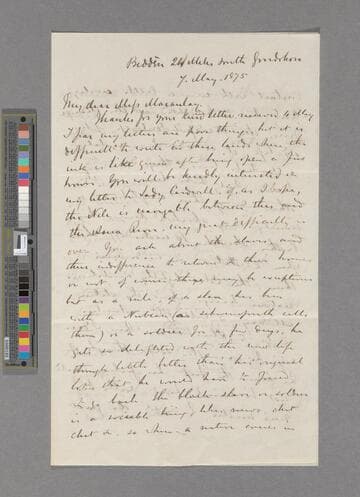 Bedden 24 Miles south Gondokoro
7. May. 1875
My dear Miss Macaulay
Thanks for your kind letter received 4 May
I fear my letters are poor things, but it is
difficult to write in these lands where the
ink is like glue after being open a few
hours. You will be kindly interested in
my letter to Lady if, as I hope,
the Nile is navigable between this and
the my great difficulty is
over. You ask about the slaves, and
their indifference to return to their homes
or not of course there may be exceptions
but as a rule, if a slave has been
with a Nubian (as Schweinfurth calls
them) or a soldier for a few days, he
gets so delighted with the new life
though little better than his original
lot that he would have to be forced
to go back the black slave or soldier
is a sociable being, likes news, chat
chat &. so when a native comes in